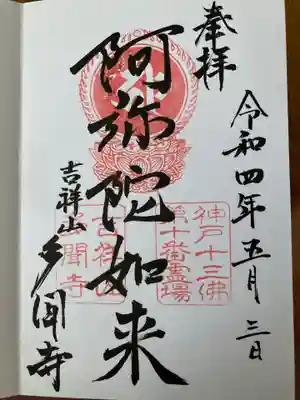 奉拝
令和四年五月三日
阿弥陀如来
吉祥山
多聞寺
神戸十三佛
第十番霊場
吉祥山
多聞寺